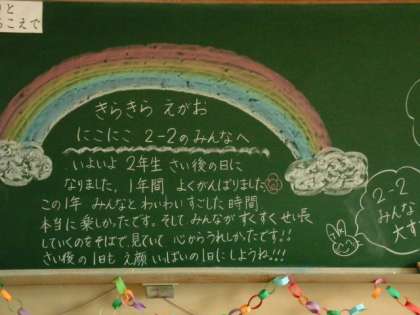 きらきら えがお
にこにこ 2-2のみんなへ
いよいよ 2年生 さい後の日に
なりました。1年間 よくがんばりました
この1年 みんなと わいわい すごした 時間
本当に楽しかったです。そして みんなが すくすく せい長
していくのを そばで 見ていて 心からうれしかったです!!
さい後の1日も え顔 いっぱいの1日にしようね!!!
2-2
みんな
大す
と
こえで